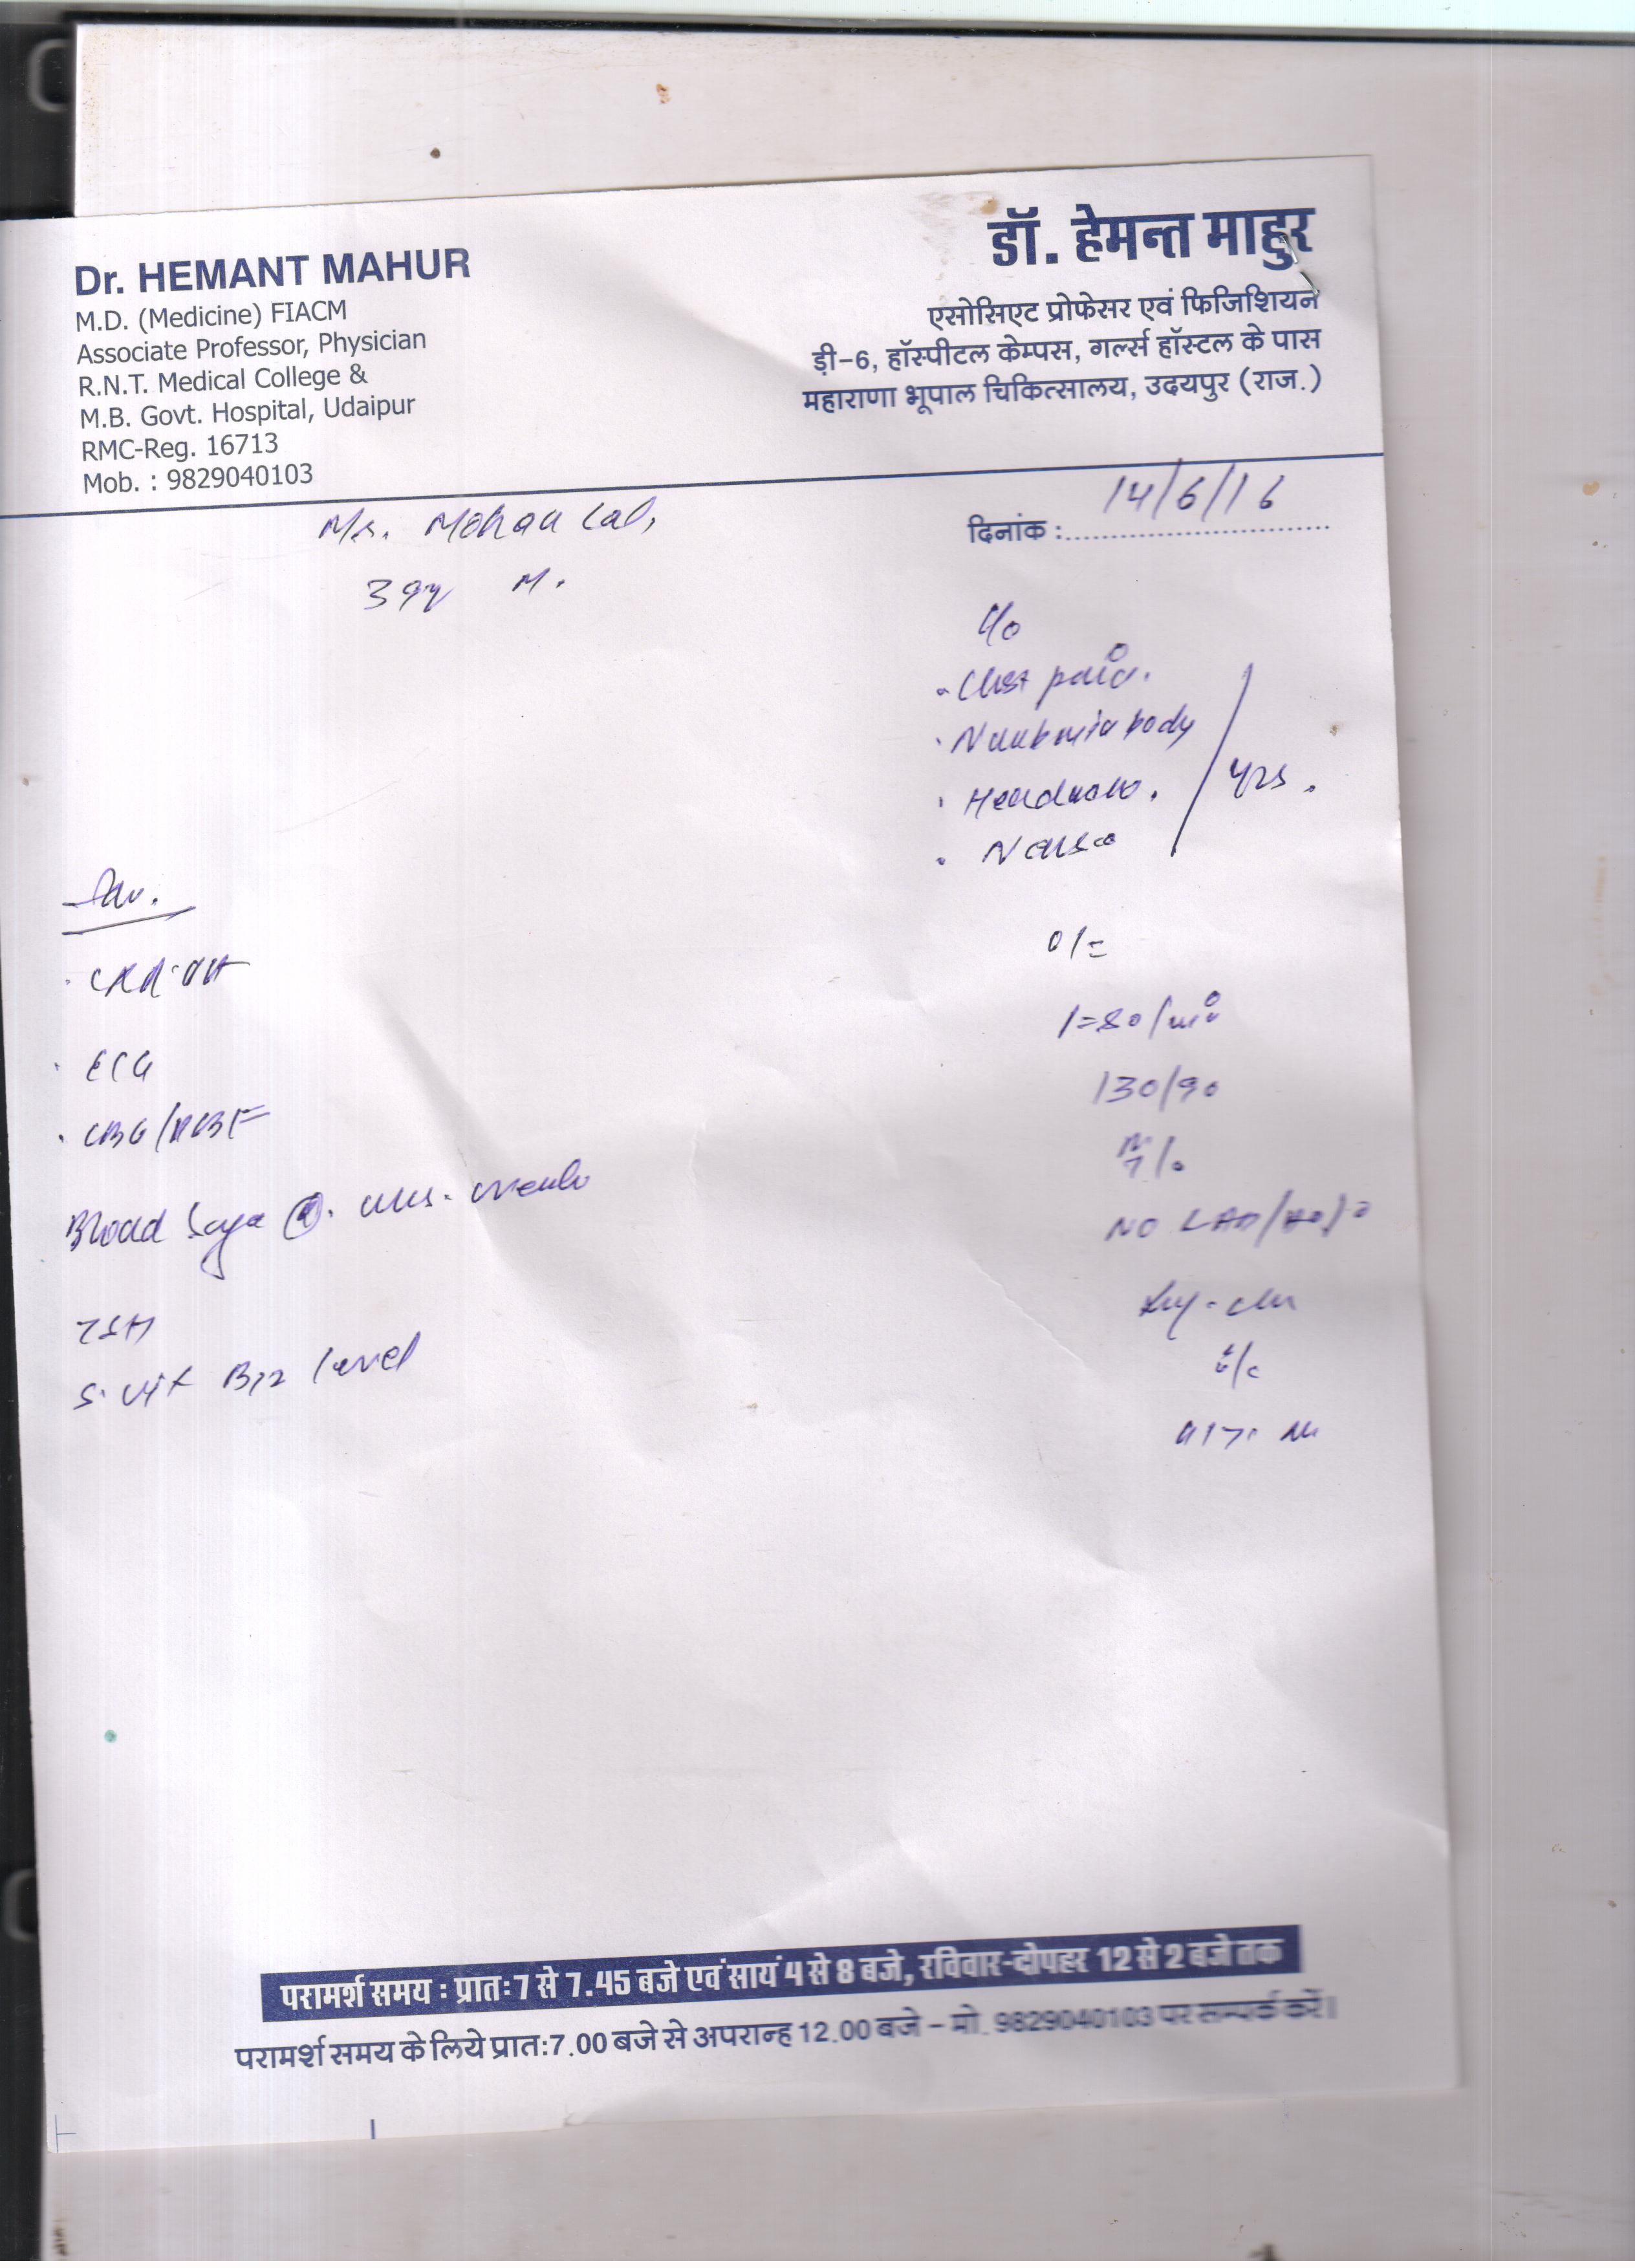 Dr. HEMANT MAHUR
M.D. (Medicine) FIACM
Associate Professor, Physician
R.N.T. Medical College &
M.B. Govt. Hospital, Udaipur
RMC-Reg. 16713
Mob. : 9829040103
डॉ. हेमन्त माहुर
एसोसिएट प्रोफेसर एवं फिजिशियन
ड़ी-6, हॉस्पीटल केम्पस, गर्ल्स हॉस्टल के पास
महाराणा भूपाल चिकित्सालय, उदयपुर (राज.)
दिनांक : 14/6/16
Mr. Mohan Lal,
39y M.
C/o
Chest pain.
body
Headache.
yrs.
Adv.
ECG
Blood
TSH
S. Vit B12 level
80/min
130/90
NO
परामर्श समय : प्रातः 7 से 7.45 बजे एवं सायं 4 से 8 बजे, रविवार-दोपहर 12 से 2 बजे तक
परामर्श समय के लिये प्रात:7.00 बजे से अपरान्ह 12.00 बजे - मो. 9829040103 पर सम्पर्क करें।